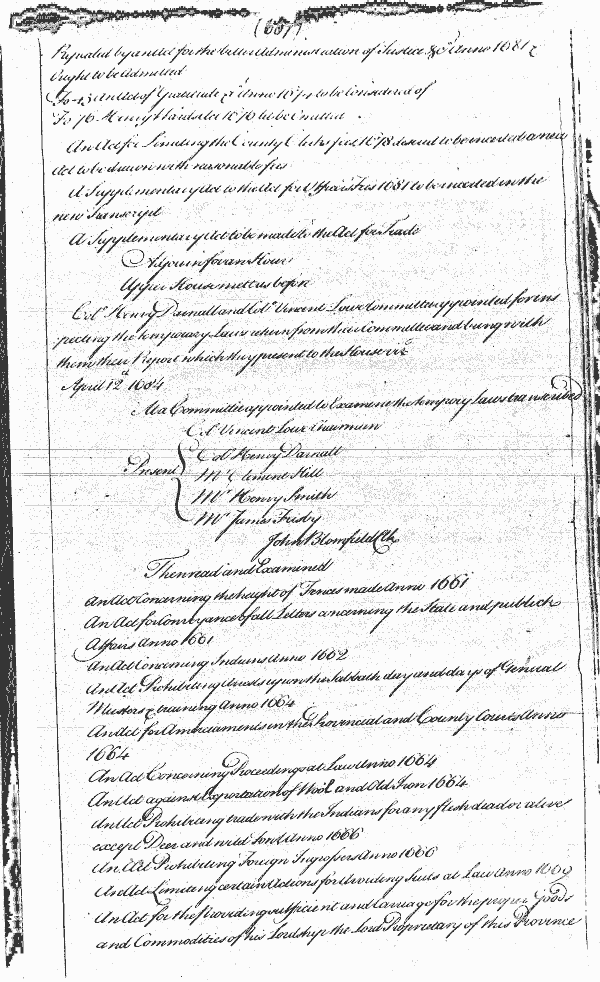 (657)
Repealed by an Act for the better Administration of Justice &c Anno 1681
Ought to be Admitted
Fo 43 An Act of Gratitude &c Anno 1674 to be Considered of
Fo 76 Henry Wards Act 1676 to be Omitted
An Act for Limiting the County Clerks fees 1678 desired to be inserted a new
Act to be drawn with reasonable fees
A Supplementary Act to the Act for Officers Fees 1681 to be inserted in the
new Transcript
A Supplementary Act to be made to the Act for Trade
Adjourn for an Hour
Upper House mett as before
Coll Henry Darnall and Coll Vincent Lowe Committee appointed for ins
pecting the temporary Laws return from their Committee and bring with
them their Report which they present to the House viz
April 12th 1684
At a Committee appointed to Examine the temporary Laws transcribed
Coll Vincent Lowe Chairman
Present Coll Henry Darnall
Mr Clement Hill
Mr Henry Smith
Mr James Frisby
John Blomfield Clk
Then read and Examined
An Act Concerning the height of Fences made Anno 1661
An Act for Conveyance of all Letters concerning the State and publick
Affairs Anno 1661
An Act Concerning Indians Anno 1662
An Act Prohibiting Arrests upon the Sabbath day and days of General
Musters & training Anno 1664
An Act for Amerciaments in the Provincial and County Courts Anno
1664
An Act Concerning Proceedings at Law Anno 1664
An Act against Exportation of Wool and Old Iron 1664
An Act Prohibiting trade with the Indians for any flesh dead or alive
except Deer and wild fowl Anno 1666
An Act Prohibiting Foreign Ingrossers Anno 1666
An Act Limiting certain Actions for Avoiding Suits at Law Anno 1669
An Act for the providing sufficient and Carriage for the proper Goods
and Commodities of his Lordship the Lord Proprietary of this Province